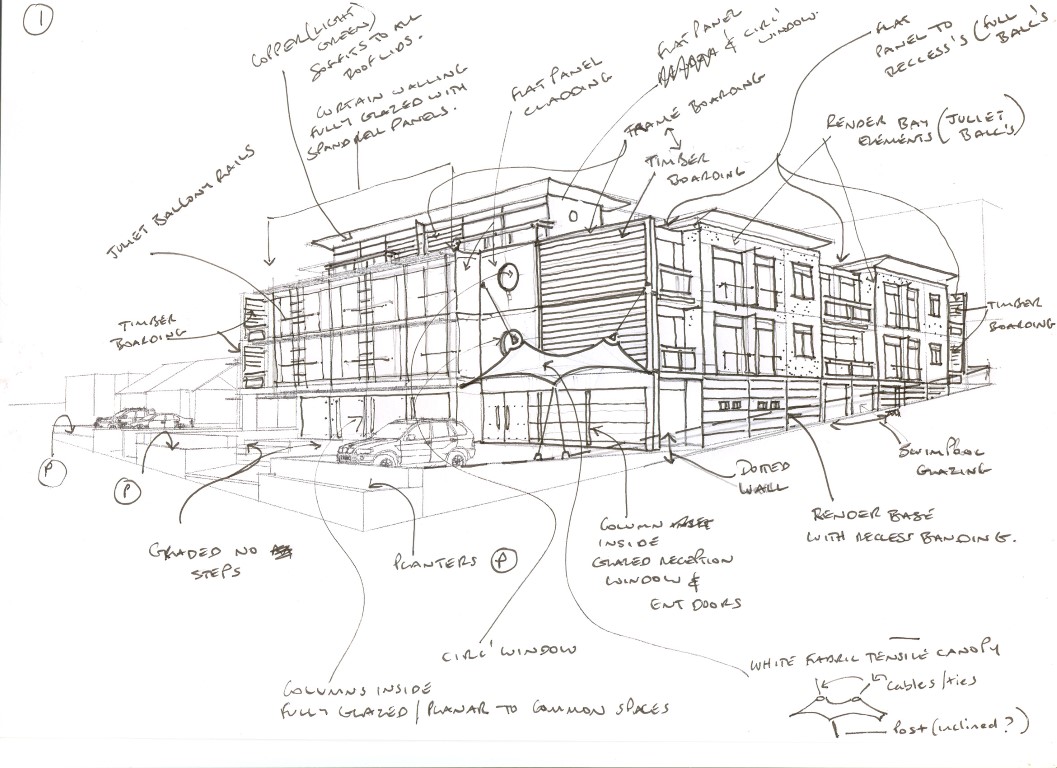 1
COPPER (LIGHT
GREEN)
SOFFITS TO ALL
ROOF LIDS.
CURTAIN WALLING
FULLY GLAZED WITH
SPANDRELL PANELS.
FLAT PANEL
CLADDING
FLAT PANEL
& CIRC'
WINDOW.
FLAT
PANEL TO
RECCESS'S (FULL
BALC'S
FRAME BOARDING
TIMBER
BOARDING
RENDER BAY (JULIET
ELEMENTS BALC'S)
JULIET BALCONY RAILS
TIMBER
BOARDING
TIMBER
BOARDING
P
P
GRADED NO
STEPS
PLANTERS P
COLUMN
INSIDE
GLAZED RECEPTION
WINDOW &
ENT DOORS
DOTTED
WALL
SWIM POOL
GLAZING
RENDER BASE
WITH RECESS BANDING.
CIRC' WINDOW
COLUMNS INSIDE
FULLY GLAZED / PLANAR TO COMMON SPACES
WHITE FABRIC TENSILE CANOPY
Cables/ties
Post (inclined?)